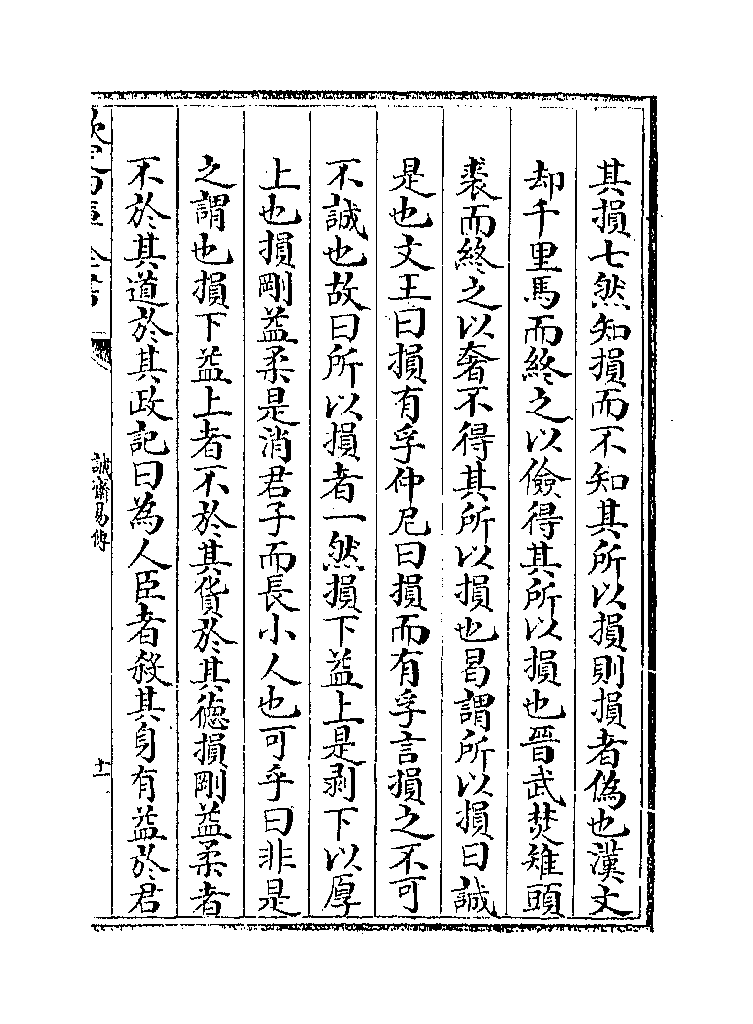 其損七然知損而不知其所以損則損者偽也漢文
却千里馬而終之以儉得其所以損也晉武焚雉頭
裘而終之以奢不得其所以損也曷謂所以損曰誠
是也文王曰損有孚仲尼曰損而有孚言損之不可
不誠也故曰所以損者一然損下益上是剥下以厚
上也損剛益柔是消君子而長小人也可乎曰非是
之謂也損下益上者不於其貨於其徳損剛益柔者
不於其道於其政記曰為人臣者殺其身有益於君
欽定四庫全書
誠齋易傳
十一